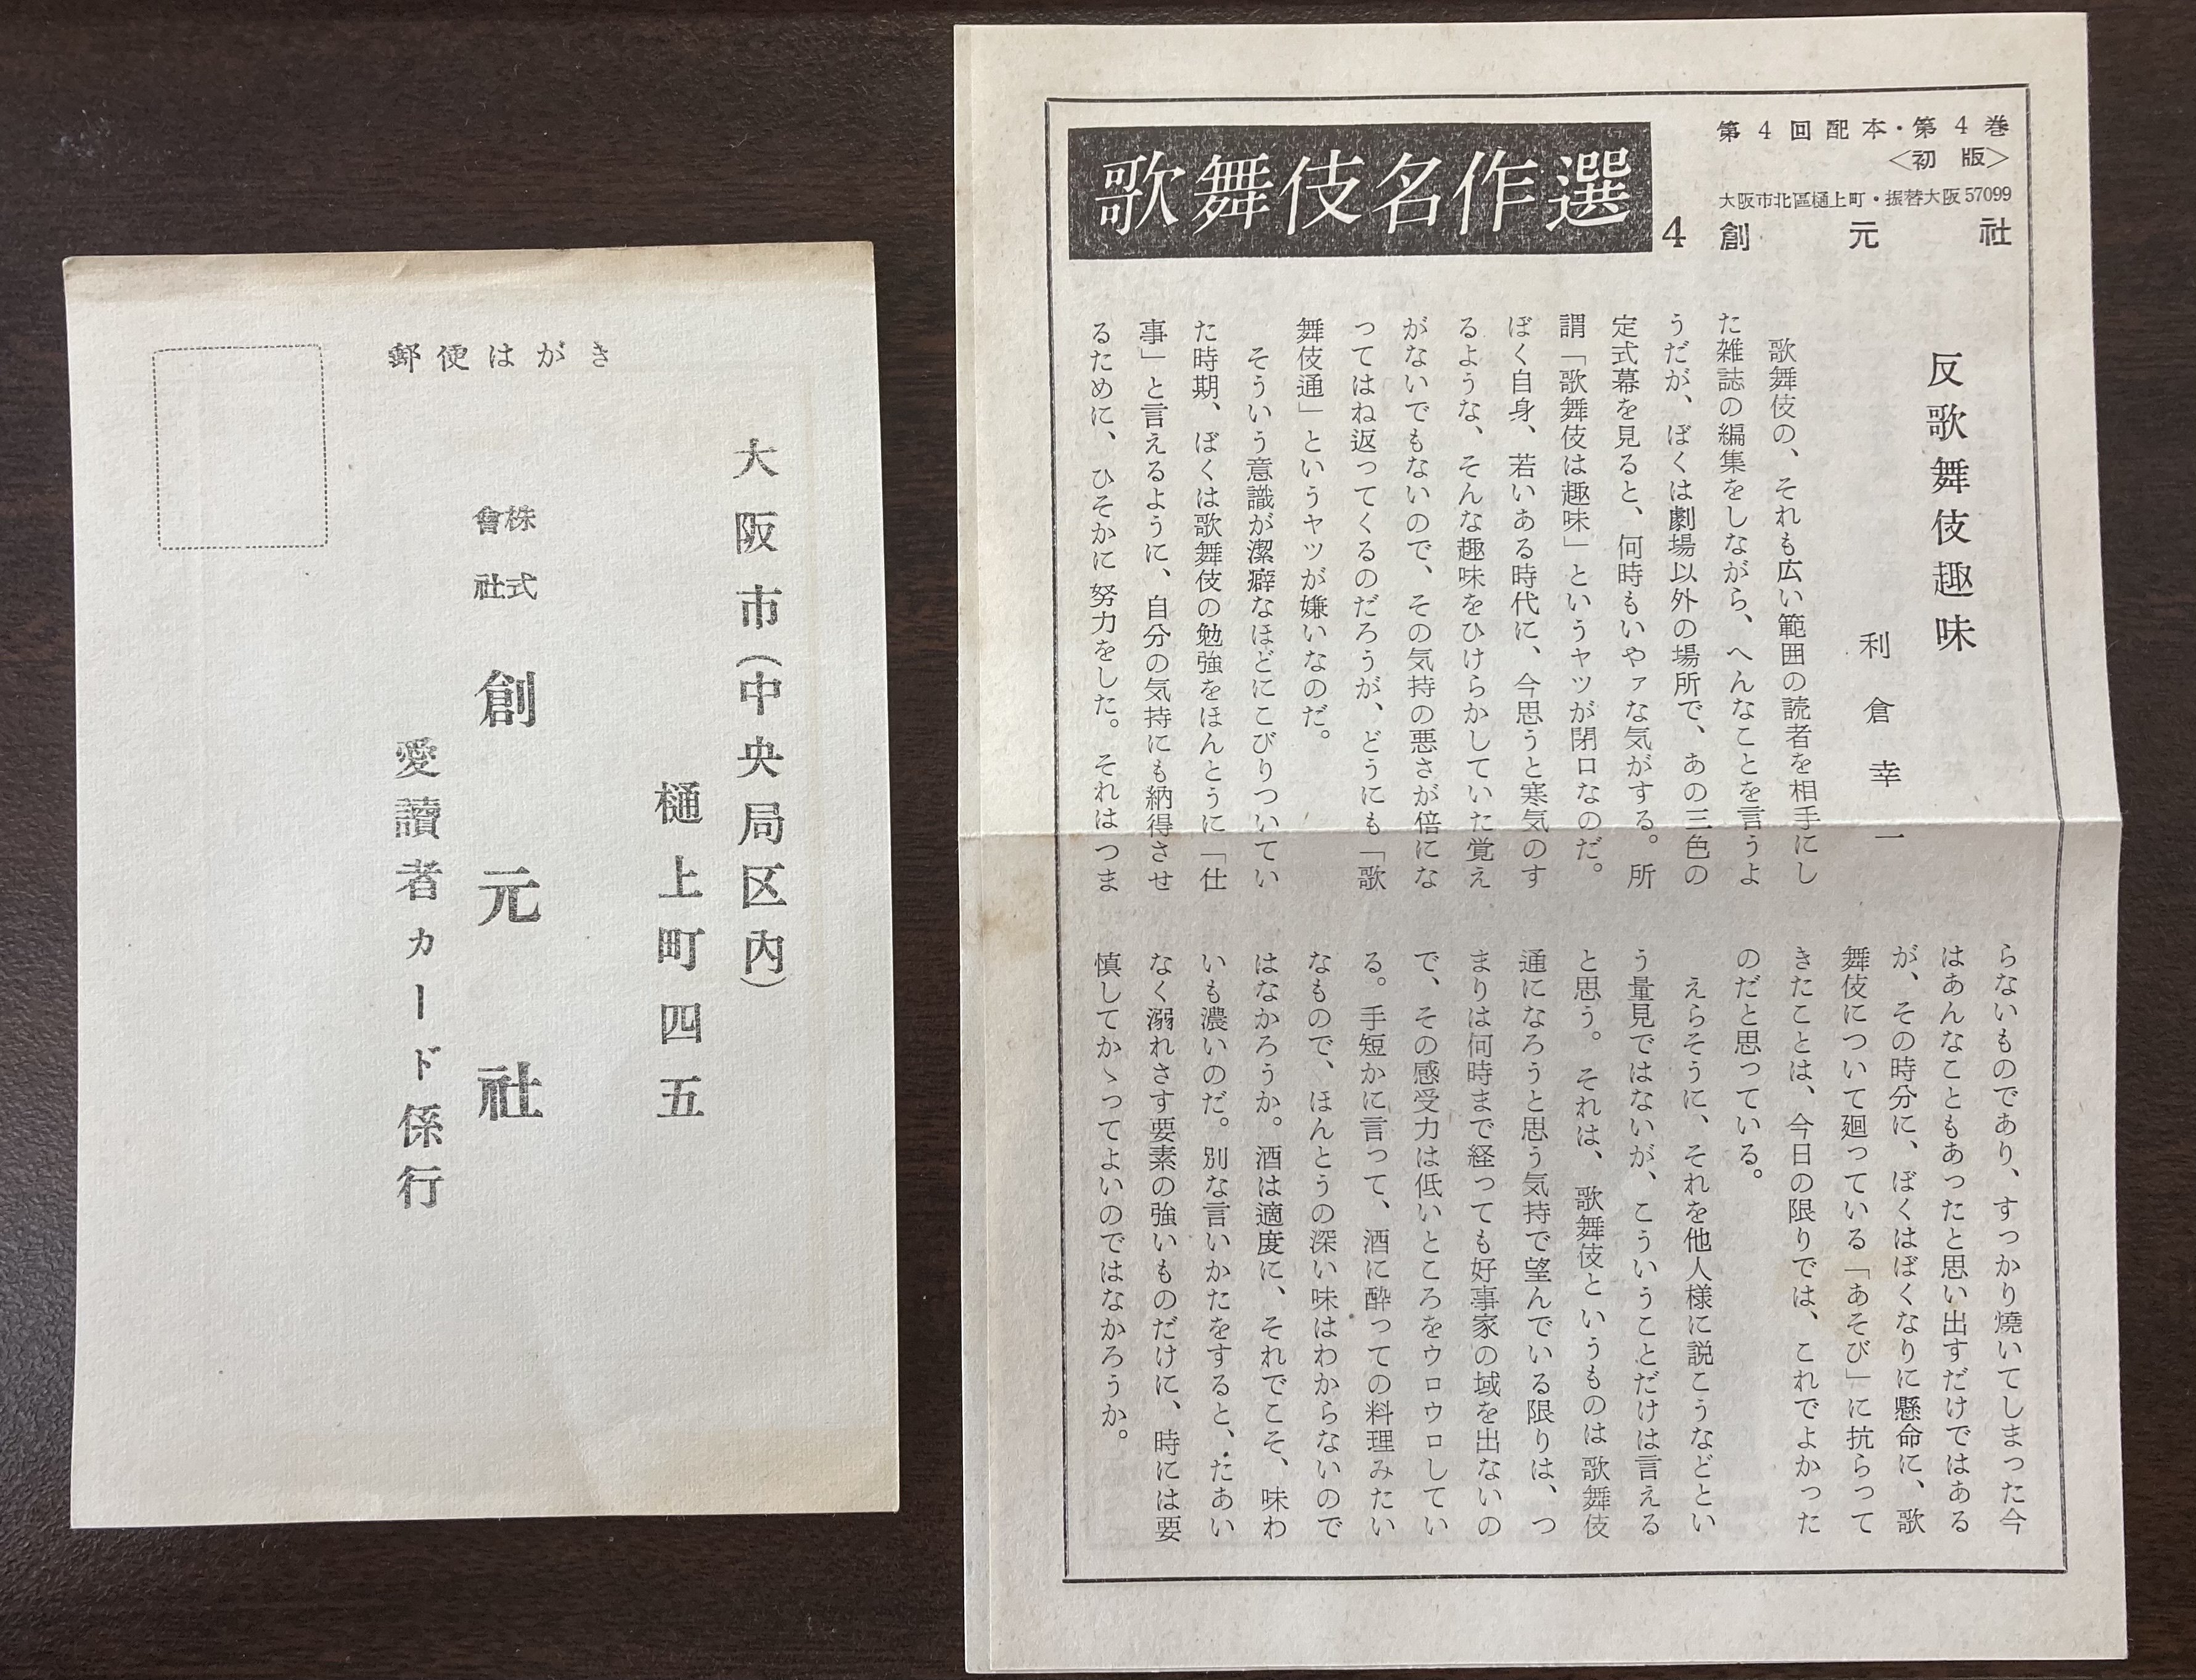 郵便はがき
大阪市(中央局区内)
樋上町四五
株式會社
創元社
愛讀者カード係行
第4回配本・第4巻
<初版>
大阪市北區樋上町・振替大阪57099
創元社
歌舞伎名作選
4
反歌舞伎趣味
利倉幸一
歌舞伎の、それも広い範囲の読者を相手にし
た雑誌の編集をしながら、へんなことを言うよ
うだが、ぼくは劇場以外の場所で、あの三色の
定式幕を見ると、何時もいやァな気がする。所
謂「歌舞伎は趣味」というヤツが閉口なのだ。
ぼく自身、若いある時代に、今思うと寒気のす
るような、そんな趣味をひけらかしていた覚え
がないでもないので、その気持の悪さが倍にな
ってはね返ってくるのだろうが、どうにも「歌
舞伎通」というヤツが嫌いなのだ。
そういう意識が潔癖なほどにこびりついてい
た時期、ぼくは歌舞伎の勉強をほんとうに「仕
事」と言えるように、自分の気持にも納得させ
るために、ひそかに努力をした。それはつま
らないものであり、すっかり燒いてしまった今
はあんなこともあったと思い出すだけではある
が、その時分に、ぼくはぼくなりに懸命に、歌
舞伎について廻っている「あそび」に抗らって
きたことは、今日の限りでは、これでよかった
のだと思っている。
えらそうに、それを他人様に説こうなどとい
う量見ではないが、こういうことだけは言える
と思う。それは、歌舞伎というものは歌舞伎
通になろうと思う気持で望んでいる限りは、つ
まりは何時まで経っても好事家の域を出ないの
で、その感受力は低いところをウロウロしてい
る。手短かに言って、酒に酔っての料理みたい
なもので、ほんとうの深い味はわからないので
はなかろうか。酒は適度に、それでこそ、味わ
いも濃いのだ。別な言いかたをすると、たあい
なく溺れさす要素の強いものだけに、時には要
慎してかゝってよいのではなかろうか。